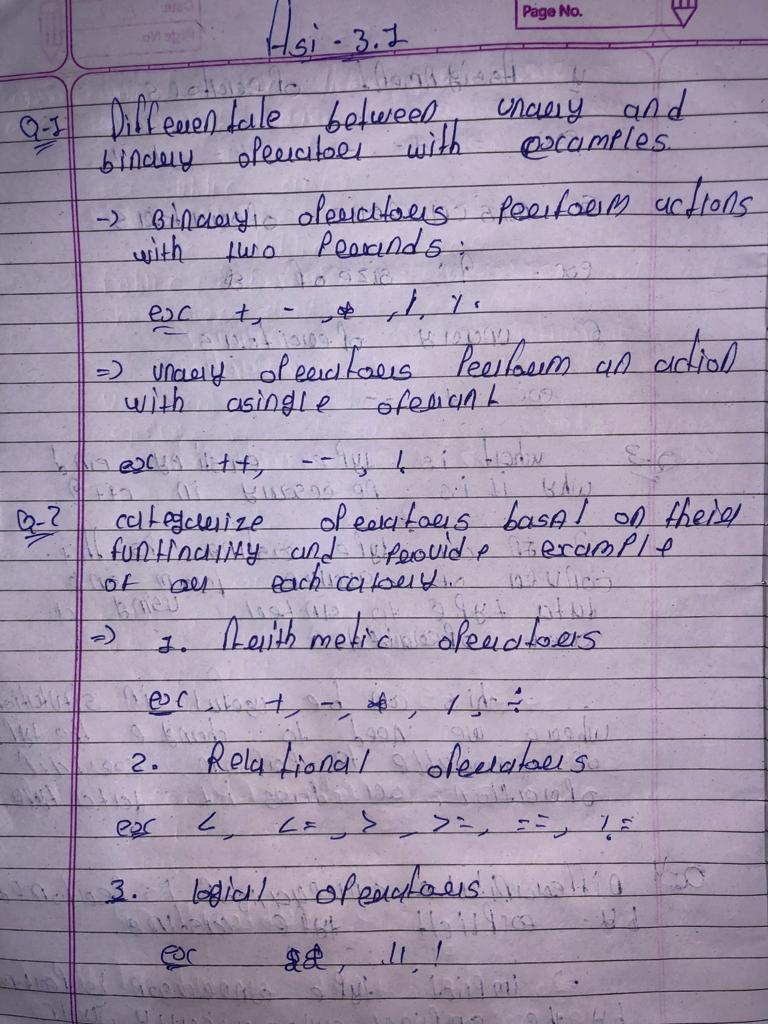 Page No.
Hsi - 3.1
Q-1 Differentate between unary and
binary operator with examples.
-> Binary operators Perform actions
with two Perands :
ex +, -, *, /, %.
=> unary operators Perform an action
with asingle operant
ex ++, --, !
Q-2 categorize operators based on their
and provide example
of our each catory.
=> 1. Arithmetic operators
ex +, -, *, /, ÷
2. Relational operators
ex <, <=, >, >=, ==, !=
3. logical operators
ex &&, ||, !